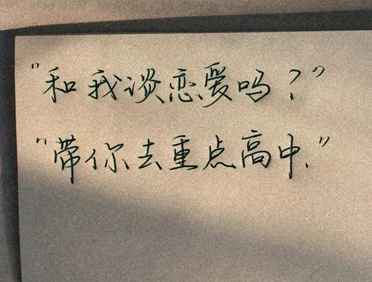 "和我谈恋爱吗？"
"带你去重点高中."